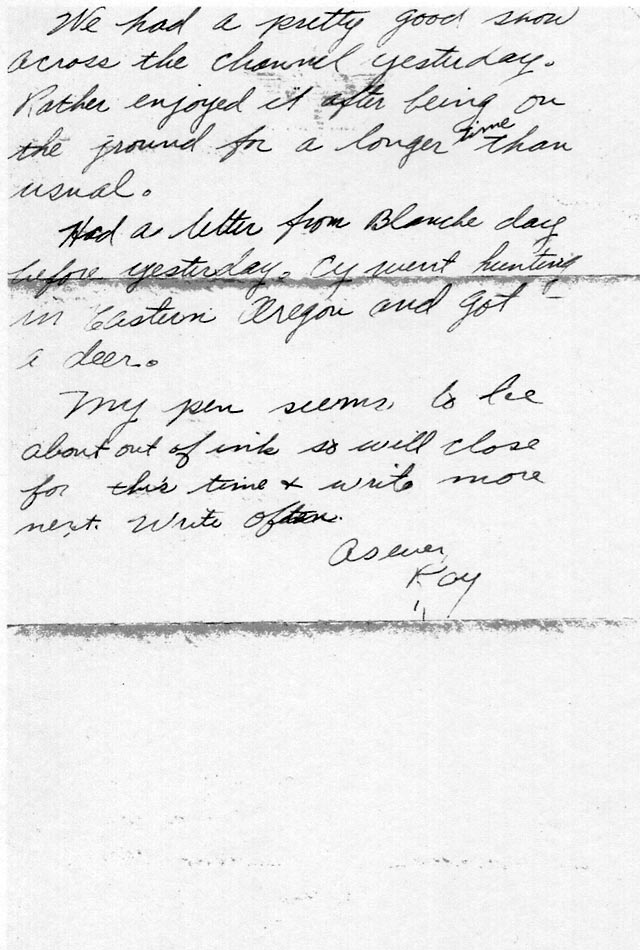 We had a pretty good show
across the channel yesterday.
Rather enjoyed it after being on
the ground for a longer time than
usual.
Had a letter from Blanche day
before yesterday. Cy went hunting
in Eastern Oregon and got
a deer.
My pen seems to be
about out of ink so will close
for this time & write more
next. Write often.
As ever,
Ray
"